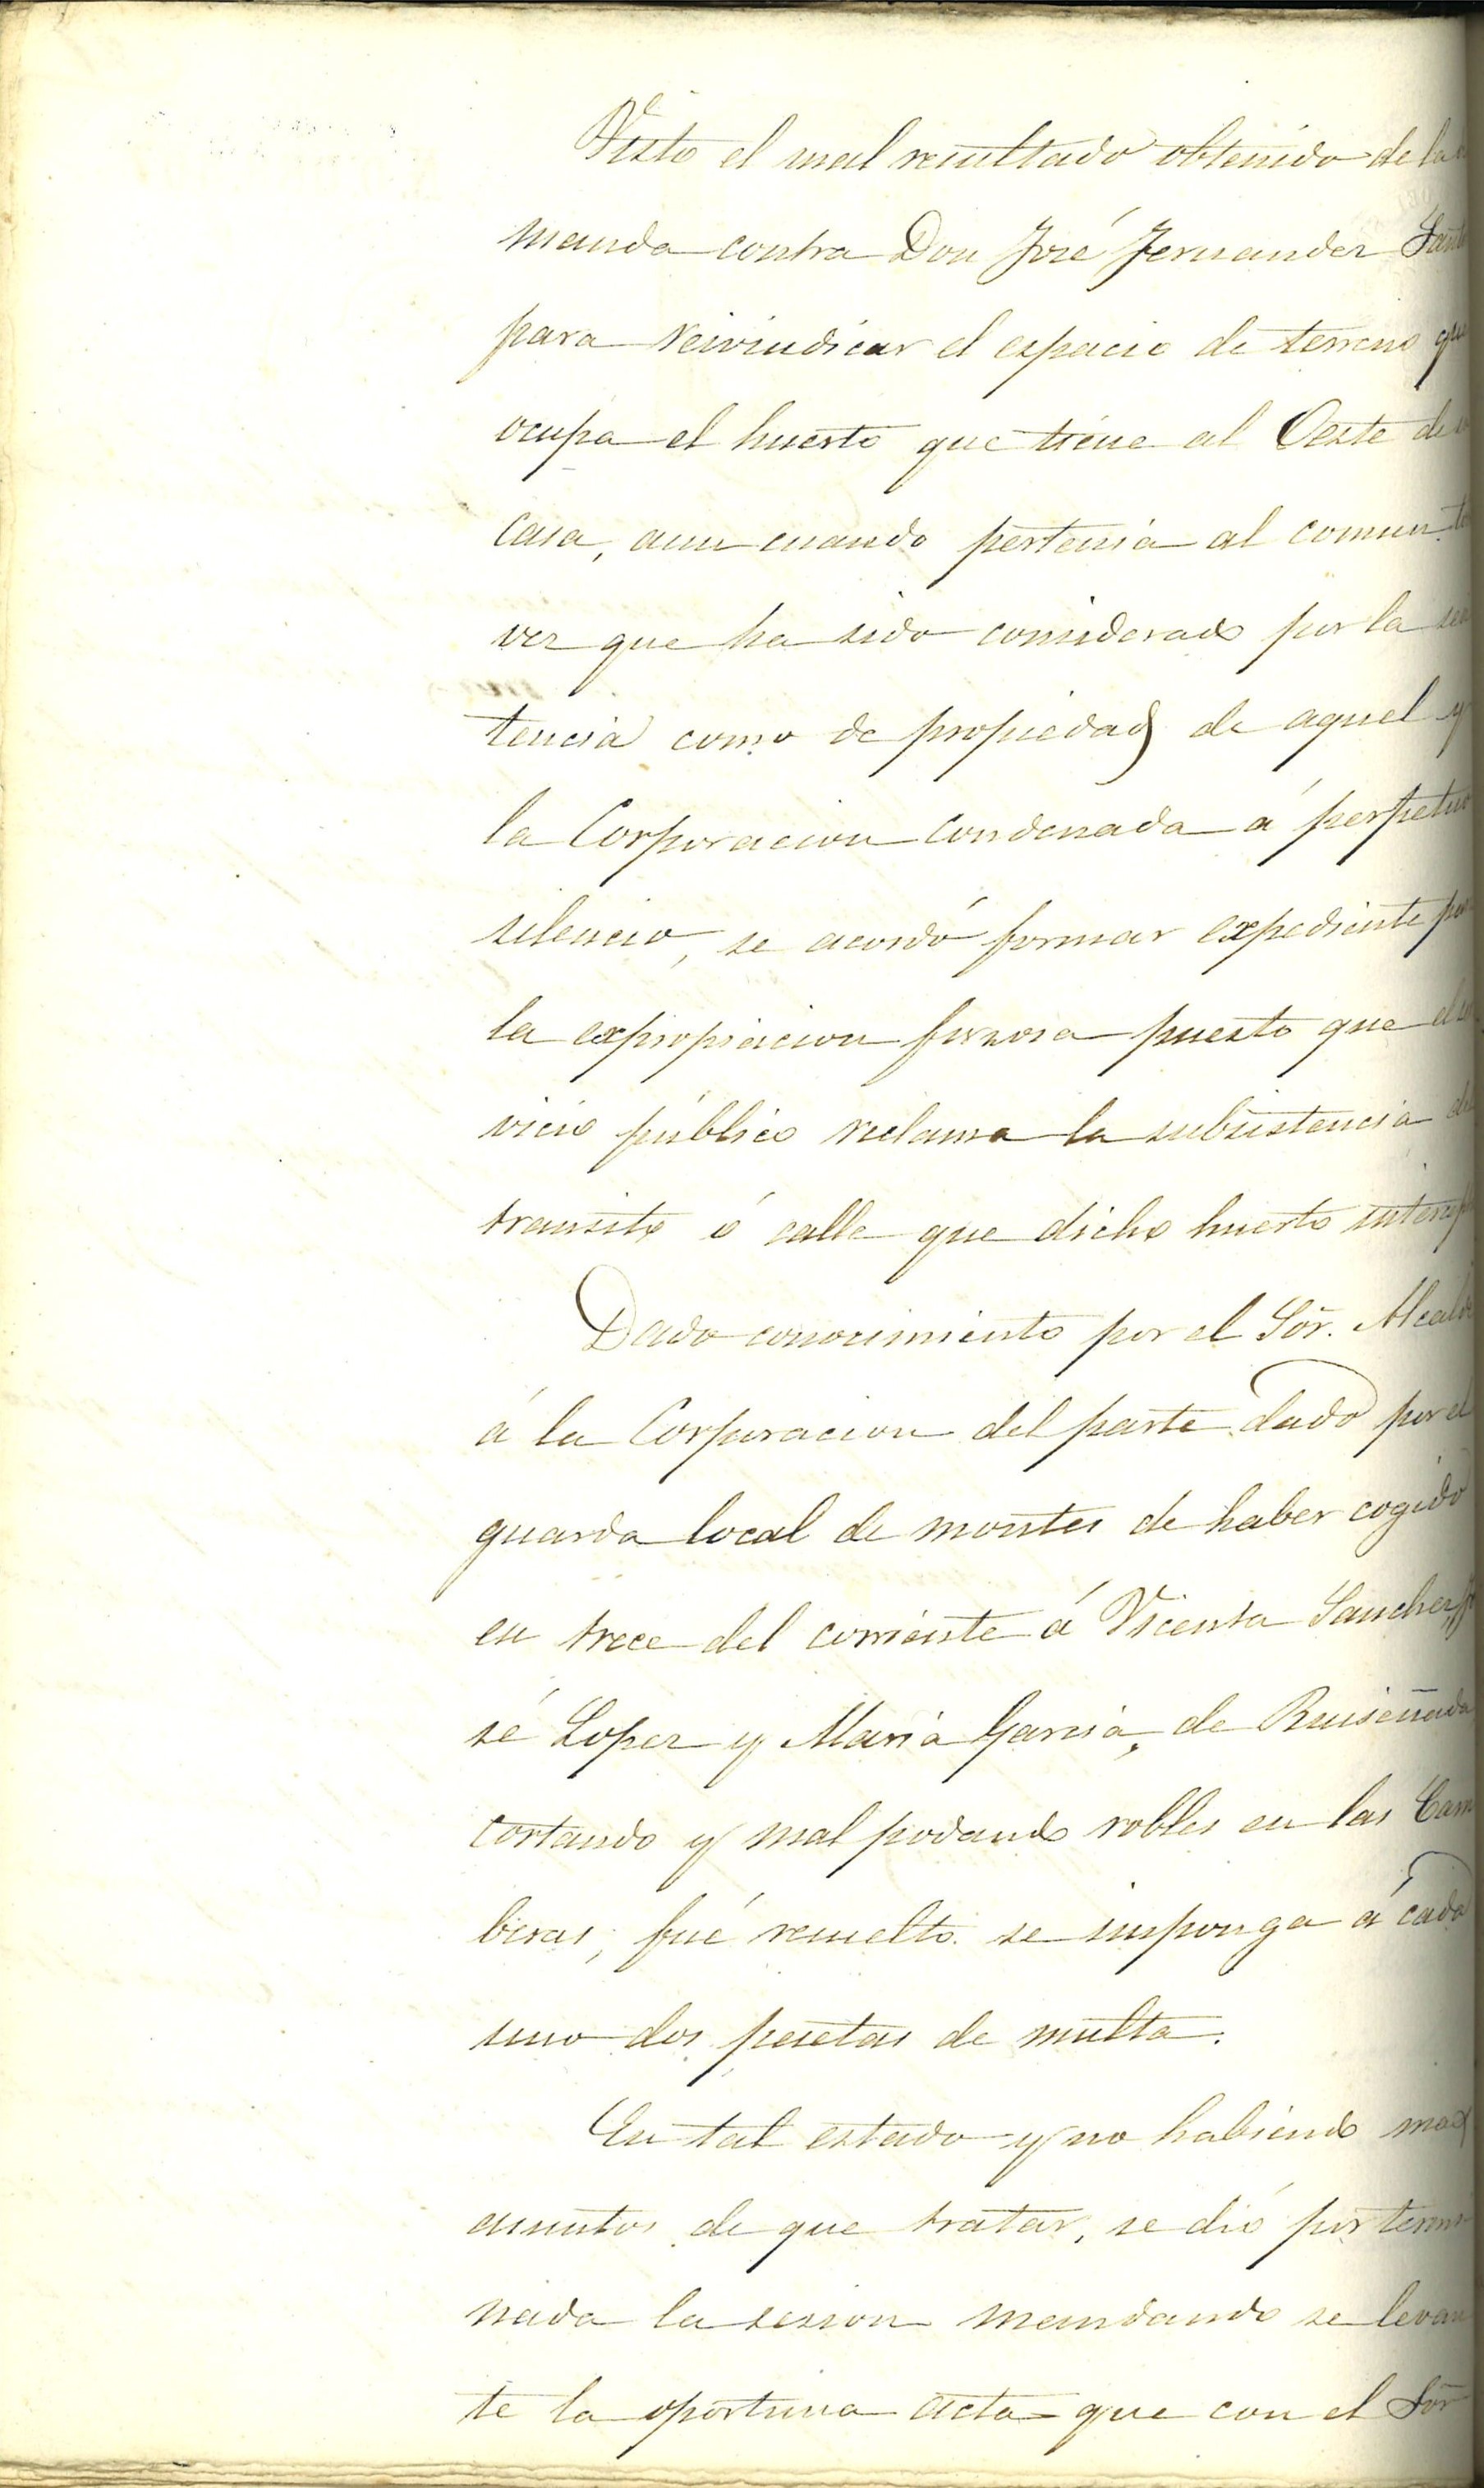 Visto el mal resultado obtenido de la
manda contra Don José Fernandez
para reivindicar el espacio de terreno que
ocupa el huerto que tiene al Oeste de
casa, aun cuando pertenia al comun
vez que ha sido considerado por la sen
tencia como de propiedad de aquel y
la Corporacion condenada á perpetuo
silencio, se acordó formar expediente
la expropiacion forzosa puesto que el
vicio público reclama la subsistencia del
transito ó calle que dicho huerto
Dado conocimiento por el Sõr. Alcalde
á la Corporacion del parte dado por el
guarda local de montes de haber cogido
en trece del corriente á Vicenta Sanchez,
sé Lopez y Maria Garcia, de Ruiseñada
cortando y mal podando robles en las Cam
beras, fué resuelto se imponga á cada
uno dos pesetas de multa.
En tal estado y no habiendo mas
asuntos de que tratar, se dió por termi
nada la sesion mandando se levan
te la oportuna acta que con el Sõr